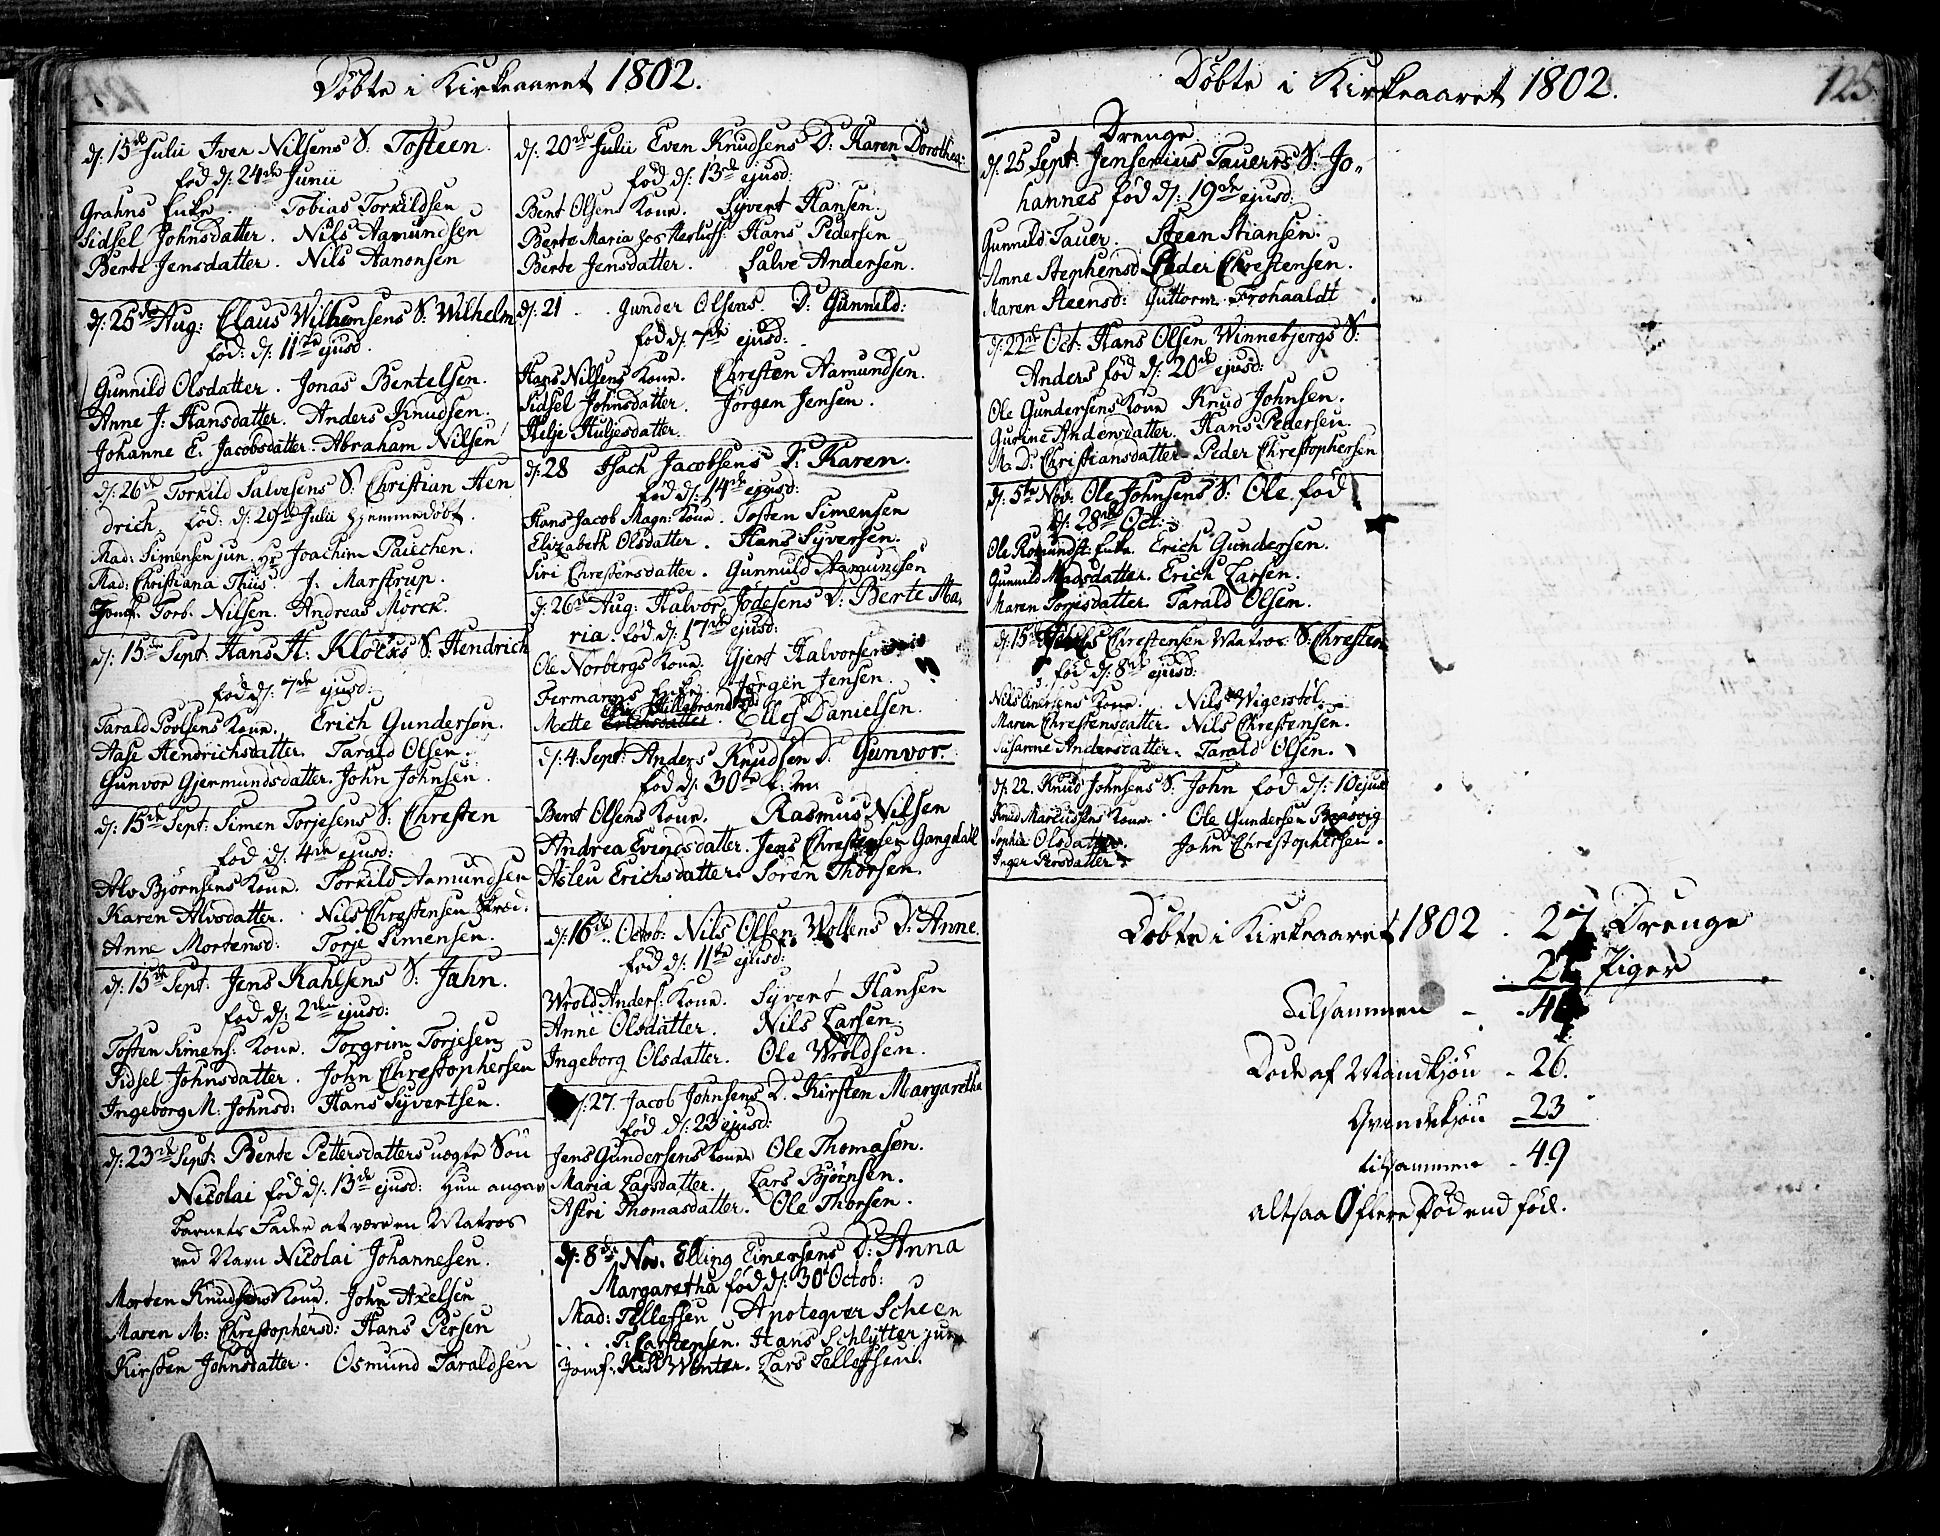 Döbte i Kirkeaaret 1802.
d: 15de Julii Iver Nilsens S: Tosteen.
fød d: 24de Junii
Grahns Enke. Tobias Torkildsen
Sidsel Johnsdatter. Nils Aamundsen
Berte Jensdatter. Nils Aanonsen
d: 25de Aug: Claus Wilhemsens S: Wilhelm
fød: d: 11te ejusd.
Gunnild Olsdatter. Jonas Bentelsen.
Anne J: Hansdatter. Anders Knudsen.
Johanne E. Jacobsdatter. Abraham Nilsen
d: 26de Torkild Salvesens S: Christian Hen
drich. fød: d: 29de Julii hjemmedöbt.
Mad: Simensen jun. Hr Joachim Pauchen.
Mad: Christiana Thiis. J. Marstrup.
Jomf: Torb. Nilsen. Andreas Mörck.
d: 15de Sept: Hans H. Klocks S: Hendrich
fød d: 7de ejusd:
Tarald Povlsens Kone. Erich Gundersøn.
Aase Hendrichsdatter. Tarald Olsen.
Gunvor Gjermundsdatter. John Johnsen.
d: 15de Sept: Simen Torjesens S: Chresten
fød d: 4de ejusd:
Alv Bjørnsens Kone. Torkild Aamundsen
Karen Alvsdatter. Nils Chrestensen
Anne Mortensd: Torje Simensen.
d: 15de Sept: Jens Kahlsens S: Jahn.
fød d: 2den ejusd:
Tosten Simens: Kone. Torgrim Torjesen
Sidsel Johnsdatter. John Chrestophersen
Ingeborg M. Johnsd: Hans Syvertsen.
d: 23de Sept: Bente Pettersdatters uægte Sön
Nicolai fød d: 13de ejusd: Hun angav
Barnets Fader at være en Matros
ved Navn Nicolai Johannesen.
Morten Knudsens Kone. John Axelsen
Maren M: Chrestophersd: Hans Persen
Kirsten Johnsdatter. Osmund Taraldsen
d: 20de Julii Even Knudsens D: Karen Dorothea:
fød d: 13de ejusd:
Bent Olsens Kone. Syvert Hansen.
Berte Maria Hans Pedersen
Berte Jensdatter. Salve Andersen.
d: 21 . . Gunder Olsens. D: Gunnild:
fød d: 7de ejusd:
Hans Nilsens Kone. Chresten Aamundsen.
Sidsel Johnsdatter. Jörgen Jensen.
Helje Huljesdatter.
d: 28 Isach Jacobsens D: Karen.
fød d: 14de ejusd:
Hans Jacob Magn: Kone. Tosten Simensen
Elizabeth Olsdatter. Hans Syversen.
Siri Chrestensdatter. Gunnuld Aamundsen
d: 26de Aug: Halvor Jödesens D: Berte Ma,
ria. fød d: 17de ejusd:
Ole Norbergs Kone. Gjert Halvorsen
Fermanns Enke. Jörgen Jensen.
Mette Ellef Danielsen.
d: 4. Sept: Anders Knudsen D: Gunvor.
fød d: 30te f: M.
Bent Olsens Kone. Rasmus Nilsen
Andrea Evensdatter. Jens Chrestensen Gangdall
Aslou Erichsdatter. Sören Thorsen.
d: 16de Octob: Nils Olsen Woltens D: Anne.
fød d: 11te ejusd:
Wrold Anders: Kone. Syvert Hansen
Anne Olsdatter. Nils Larsen.
Ingeborg Olsdatter. Ole Wroldsen.
d: 27. Jacob Johnsens D: Kirsten Margaretha
fød d: 23 ejusd:
Jens Gundersens Kone. Ole Thomasøn.
Maria Larsdatter. Lars Bjørnsen.
Astri Thomasdatter. Ole Thorsen.
d: 8de Nov. Elling Einersens D: Anna
Margaretha fød d: 30te Octob:
Mad: Tellefsen Apoteqver Scheen
. . . T. Carstensen. Hans Schlytter jun.
Jomf. Kirst. Winter. Lars Tellefsen.
Döbte i Kirkeaaret 1802. 125.
Drenge
d: 25 Sept: Jensenius Tauers S: Jo,,
hannes fød d: 19de ejusd:
Gunnild Tauer. Steen Stiansen.
Anne Stephensd: Peder Chrestensen.
Maren Steensd: Guttorm Frohaaldt
d: 22de Oct: Hans Olsen Winnebjergs S:
Anders fød d: 20de ejusd:
Ole Gundersens Kone Knud Johnsen.
Gurine Andersdatter. Hans Pedersen.
M. D: Christiansdatter. Peder Chrestophersen
d: 5te Nov: Ole Johnsens S: Ole. fød
d: 28de Oct:
Ole Romundst: Enke. Erich Gundersen.
Gunnild Madsdatter. Erich Larsen.
Maren Torjesdatter Tarald Olsen.
d: 15de Chrestensen Matros S: Chresten
fød d: 8de ejusd:
Nils Einersens Kone. Nils Wigerstöl.
Maren Chrestensdatter. Nils Chrestensen.
Susanne Andersdatter. Tarald Olsen.
d: 22. Knud Johnsens S: John fød d: 10 ejusd
Knud Kone. Ole Gundersen
Sophie Olsdatter. John Christophersen.
Inger Persdatter.
Döbte i Kirkeaaret 1802 . 27 Drenge
22 Piger
Tilsammen - - 4
Döde af Mandkjön - 26.
Qvindekjön - 23
tilsammen - 49
altsaa 0 flere död end fød.